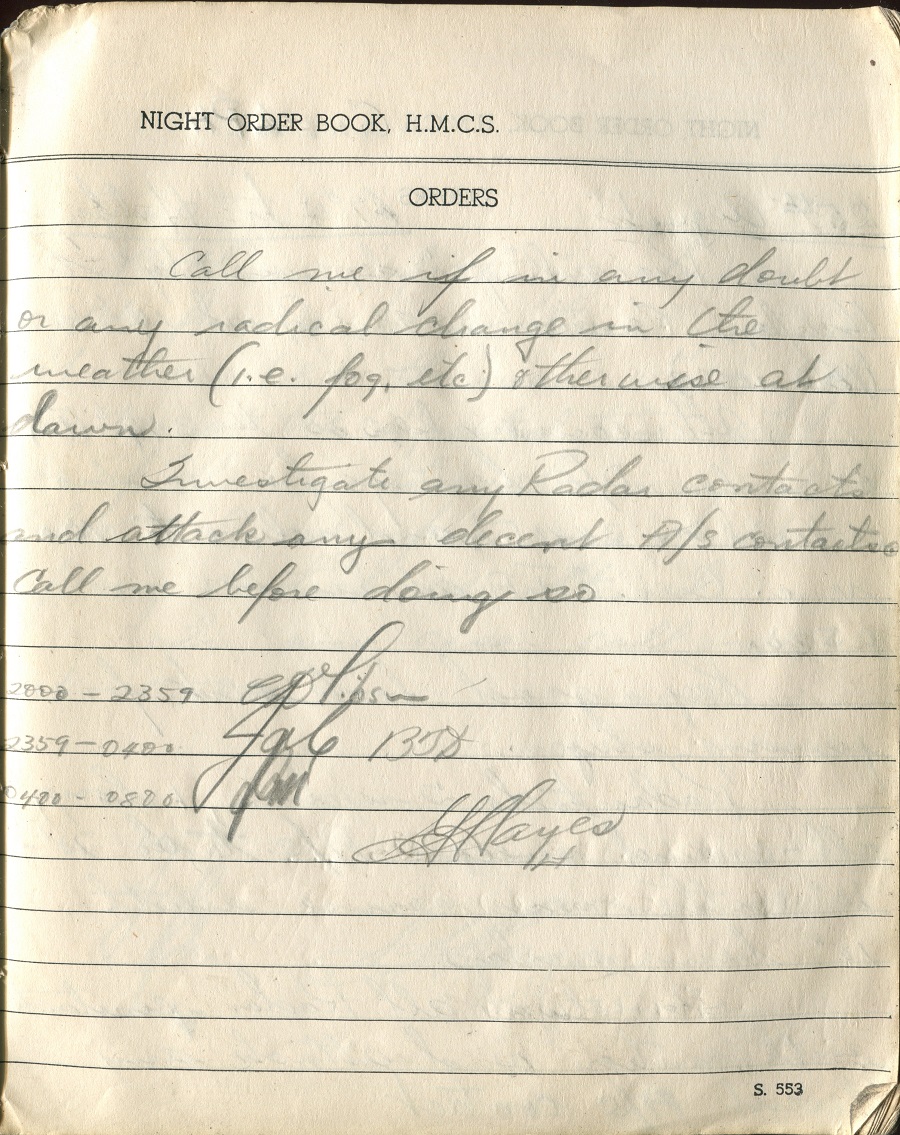 NIGHT ORDER BOOK, H.M.C.S.
ORDERS
Call me if in any doubt
or any radical change in the
weather (i.e. fog, etc) otherwise at
dawn.
Investigate any Radar contacts
and attack any decent A/s contacts
Call me before doing so
2000 - 2359
2359 - 0400
0400 - 0800
Hayes
S. 553